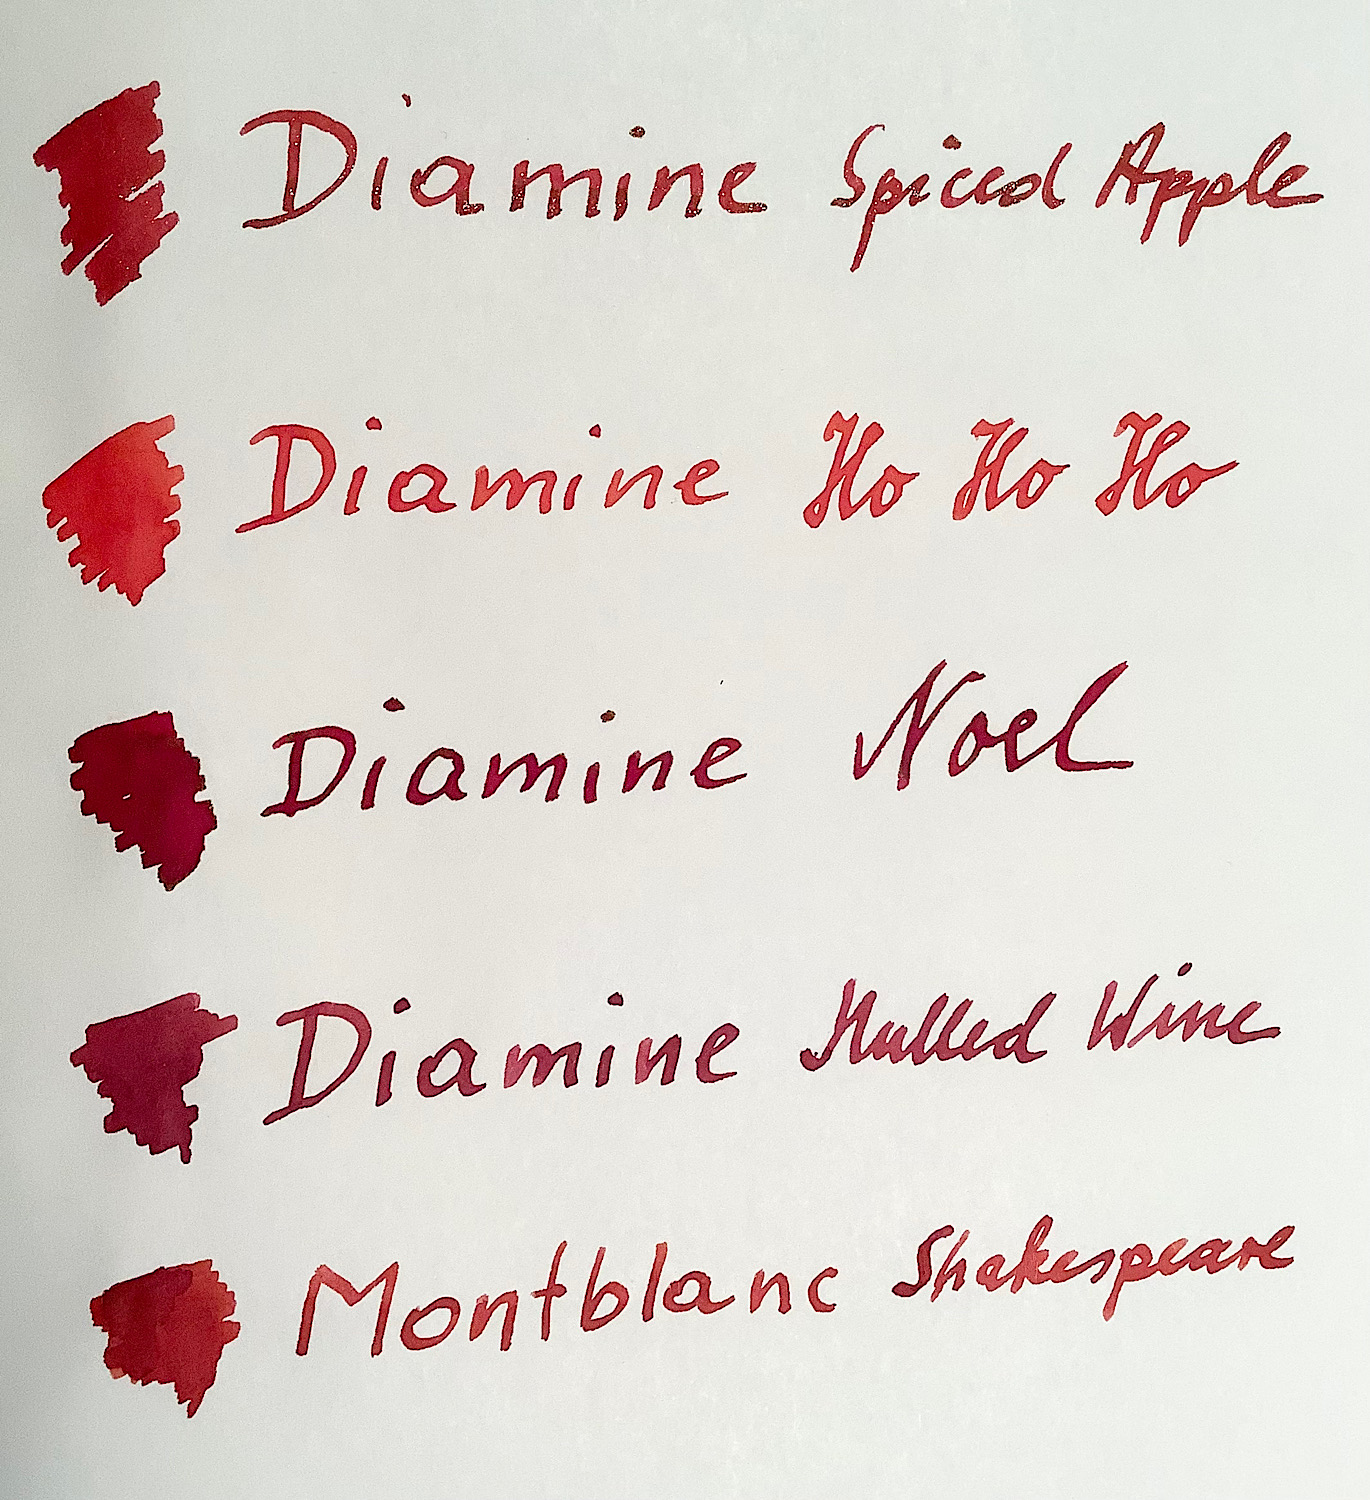 Diamine Spiced Apple
Diamine Ho Ho Ho
Diamine Noel
Diamine Mulled Wine
Montblanc Shakespeare